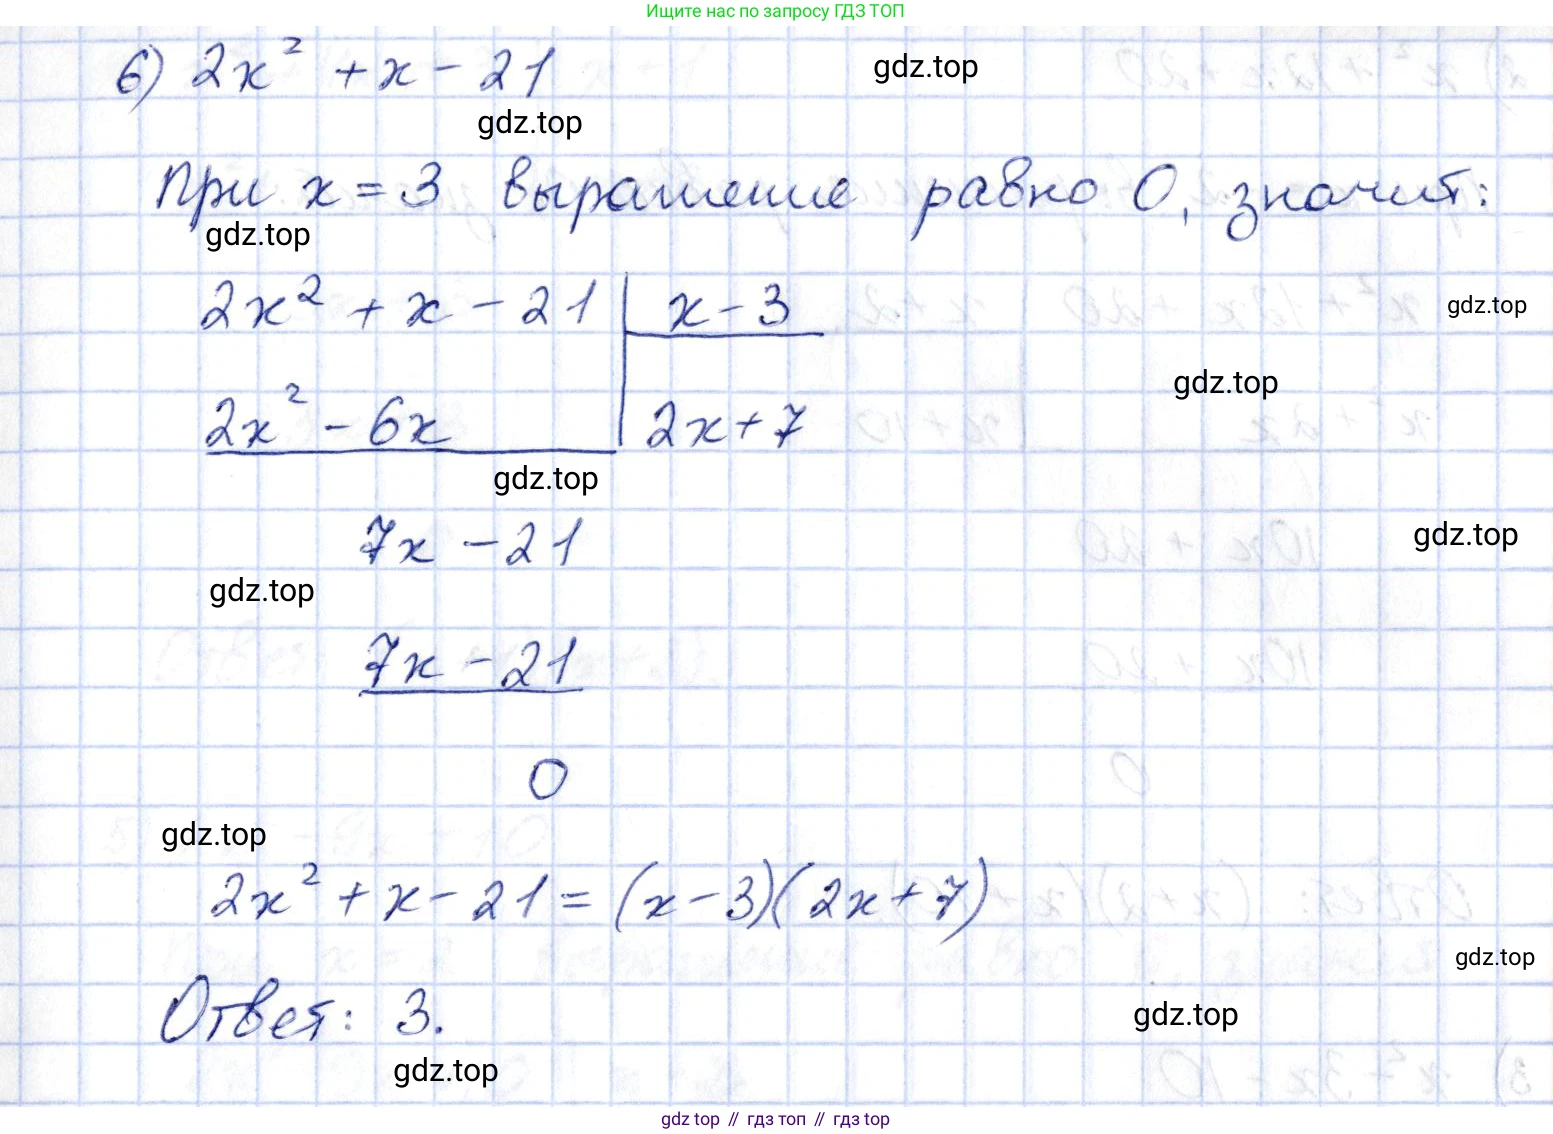 Ищите нас по запросу ГДЗ ТОП
6) 2x² + x - 21
gdz.top
gdz.top
при x = 3 выражение равно 0, значит:
gdz.top
2x² + x - 21 | x - 3
gdz.top
gdz.top
2x² - 6x | 2x + 7
gdz.top
7x - 21
gdz.top
gdz.top
7x - 21
0
gdz.top
2x² + x - 21 = (x - 3)(2x + 7)
gdz.top
Ответ: 3.
gdz.top
gdz.top
gdz top // гдз топ // гдз top